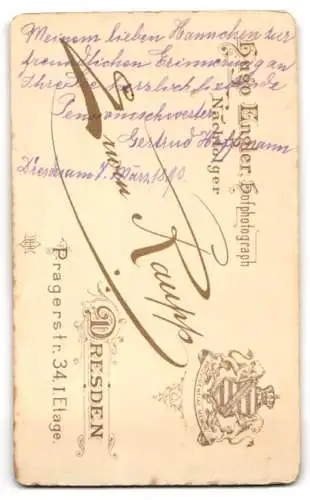 Meinem lieben Hannchen zur
freundlichen Erinnerung an
Ihre Sie herzlich liebende
Pensionsschwester
Gertrud Hoffmann
Dresden am 7. März 1890.
Hugo Engler, Hofphotograph
Nachfolger
Erwin Raupp
DRESDEN
Pragerstr. 34.I.Etage.